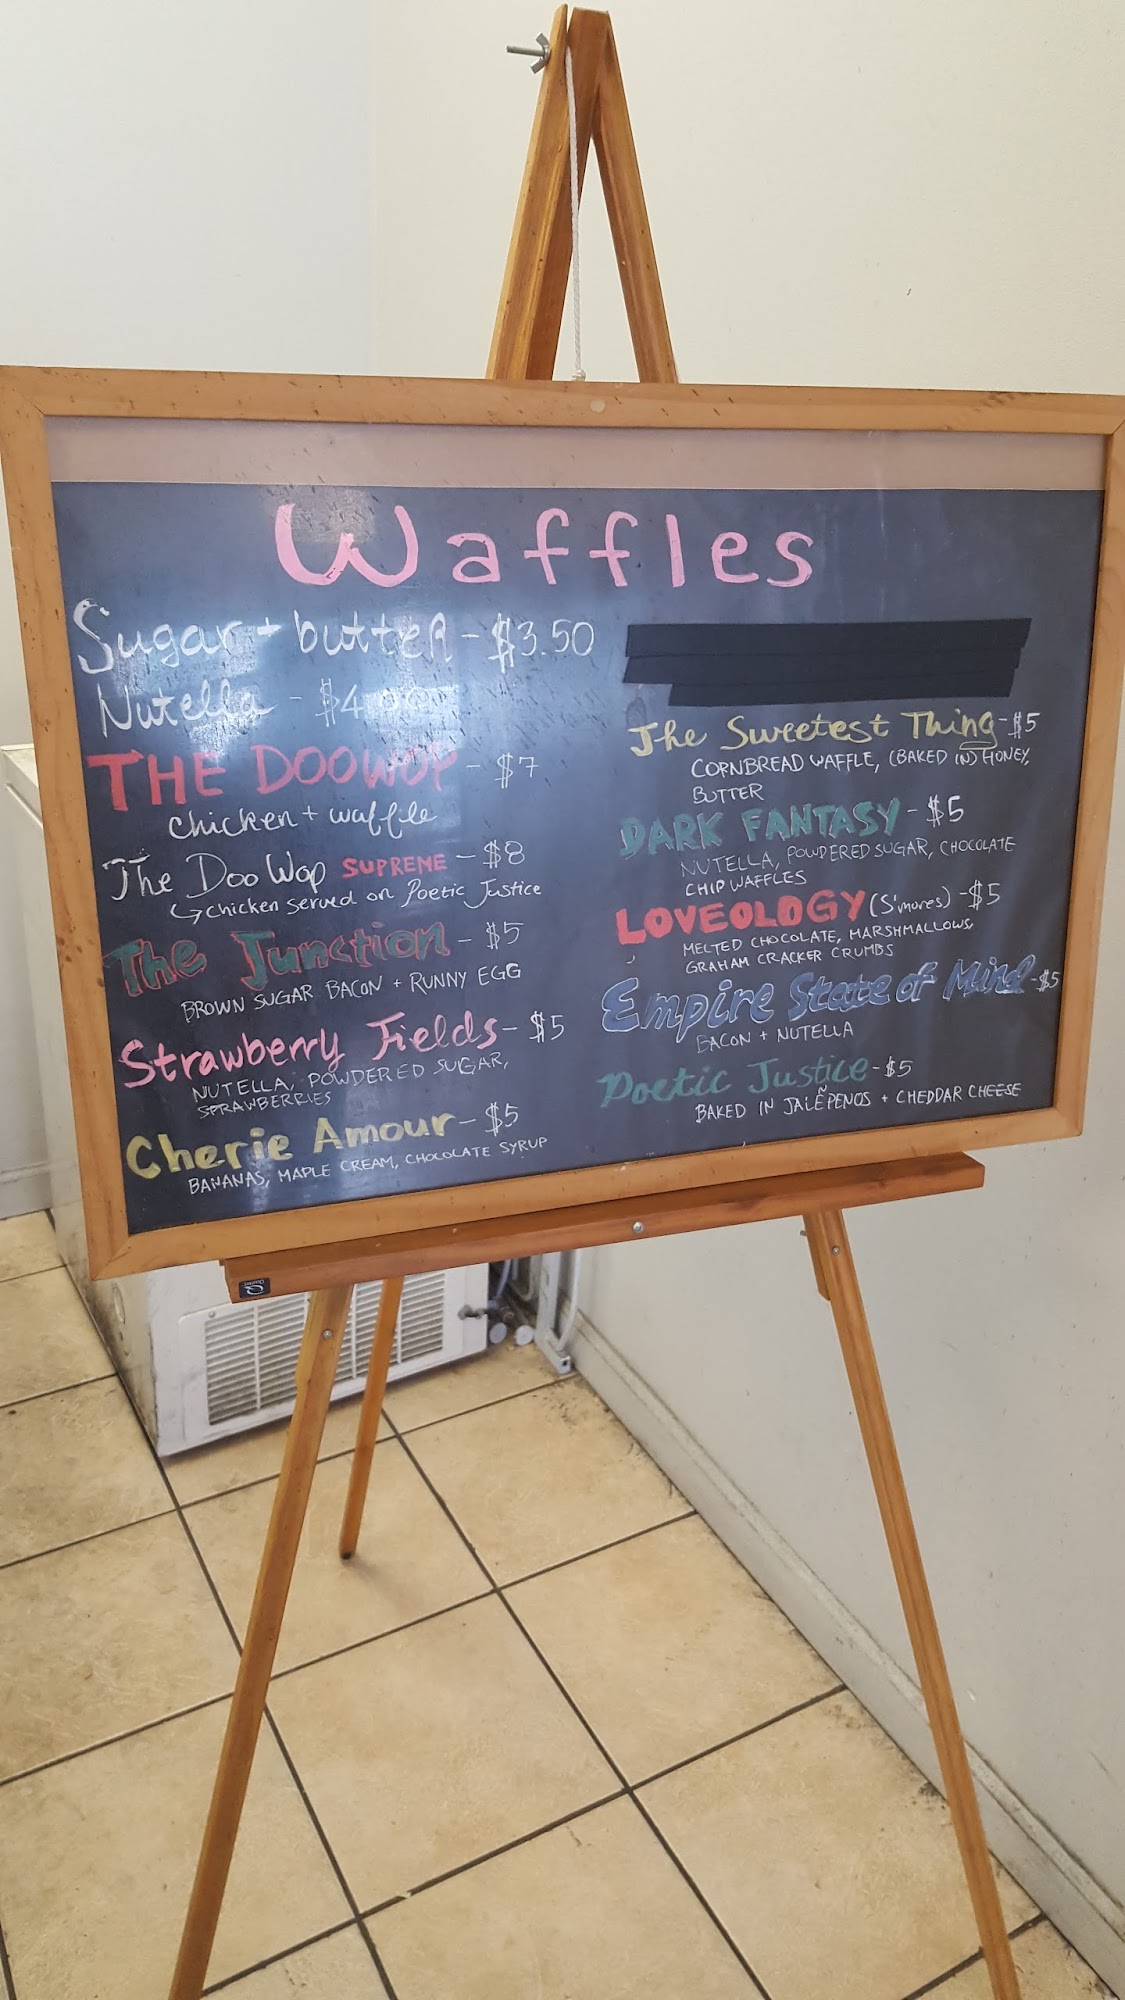 Waffles
Sugar + butter - $3.50
Nutella - $4.00
THE DOOWOP - $7
chicken + waffle
The Doo Wop SUPREME - $8
chicken served on Poetic Justice
The Junction - $5
BROWN SUGAR BACON + RUNNY EGG
Strawberry Fields - $5
NUTELLA, POWDERED SUGAR,
STRAWBERRIES
Cherie Amour - $5
BANANAS, MAPLE CREAM, CHOCOLATE SYRUP
The Sweetest Thing - $5
CORNBREAD WAFFLE, (BAKED IN) HONEY,
BUTTER
DARK FANTASY - $5
NUTELLA, POWDERED SUGAR, CHOCOLATE
CHIP WAFFLES
LOVEOLOGY (S'mores) - $5
MELTED CHOCOLATE, MARSHMALLOWS,
GRAHAM CRACKER CRUMBS
Empire State of Mind - $5
BACON + NUTELLA
Poetic Justice - $5
BAKED IN JALĚPENOS + CHEDDAR CHEESE
Quartet